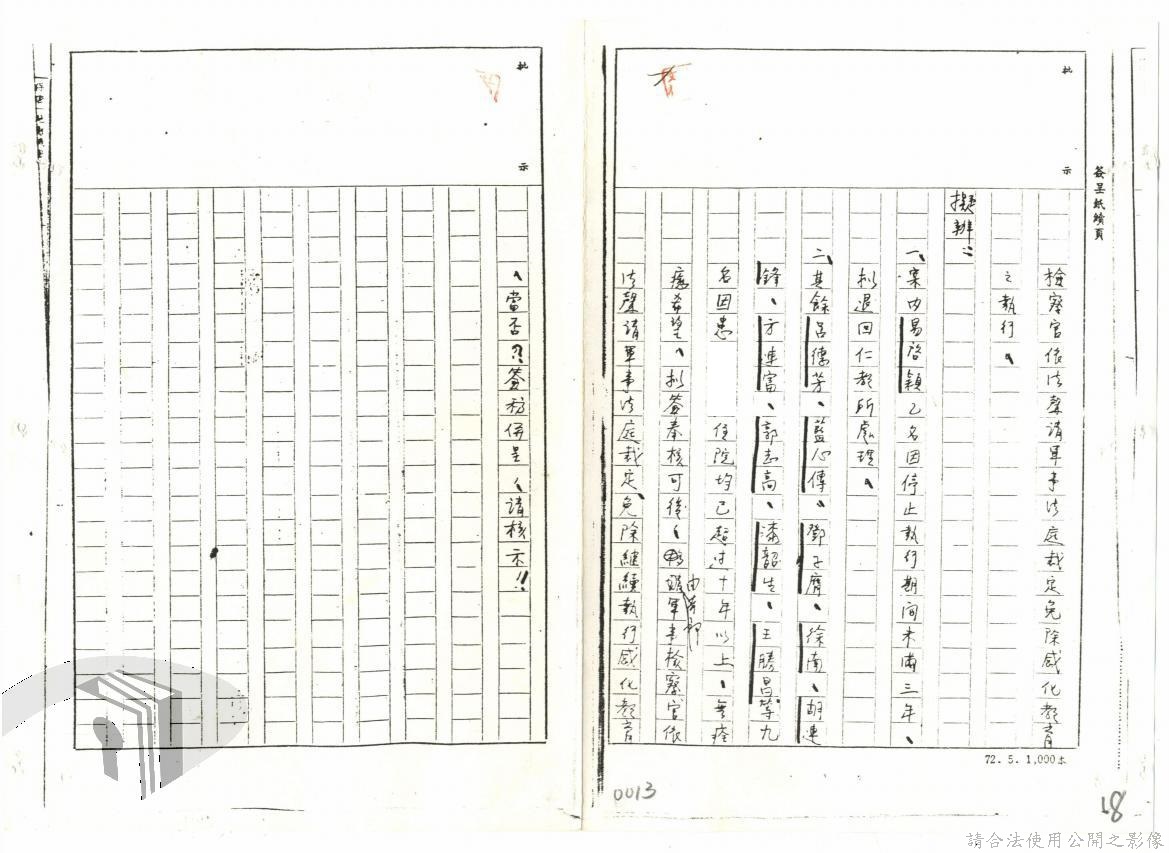 簽呈紙續頁
批示
檢察官依法聲請軍事法庭裁定免除感化教育
之執行。
擬辦：
一、案內易啓穎乙名因停止執行期間未滿三年、
擬退回仁教所處理。
二、其餘呂德芳、藍心傳、鄧子膺、徐南、胡連
鋒、方連富、郭志高、漆韶生、王勝昌等九
名因患　　　住院均已超過十年以上、無痊
癒希望、擬簽奉核可後、由本部軍事檢察官依
法聲請軍事法庭裁定、免除繼續執行感化教育
72.5.1,000本
0013
18
批示
、當否?簽稿併呈、請核示!!
請合法使用公開之影像